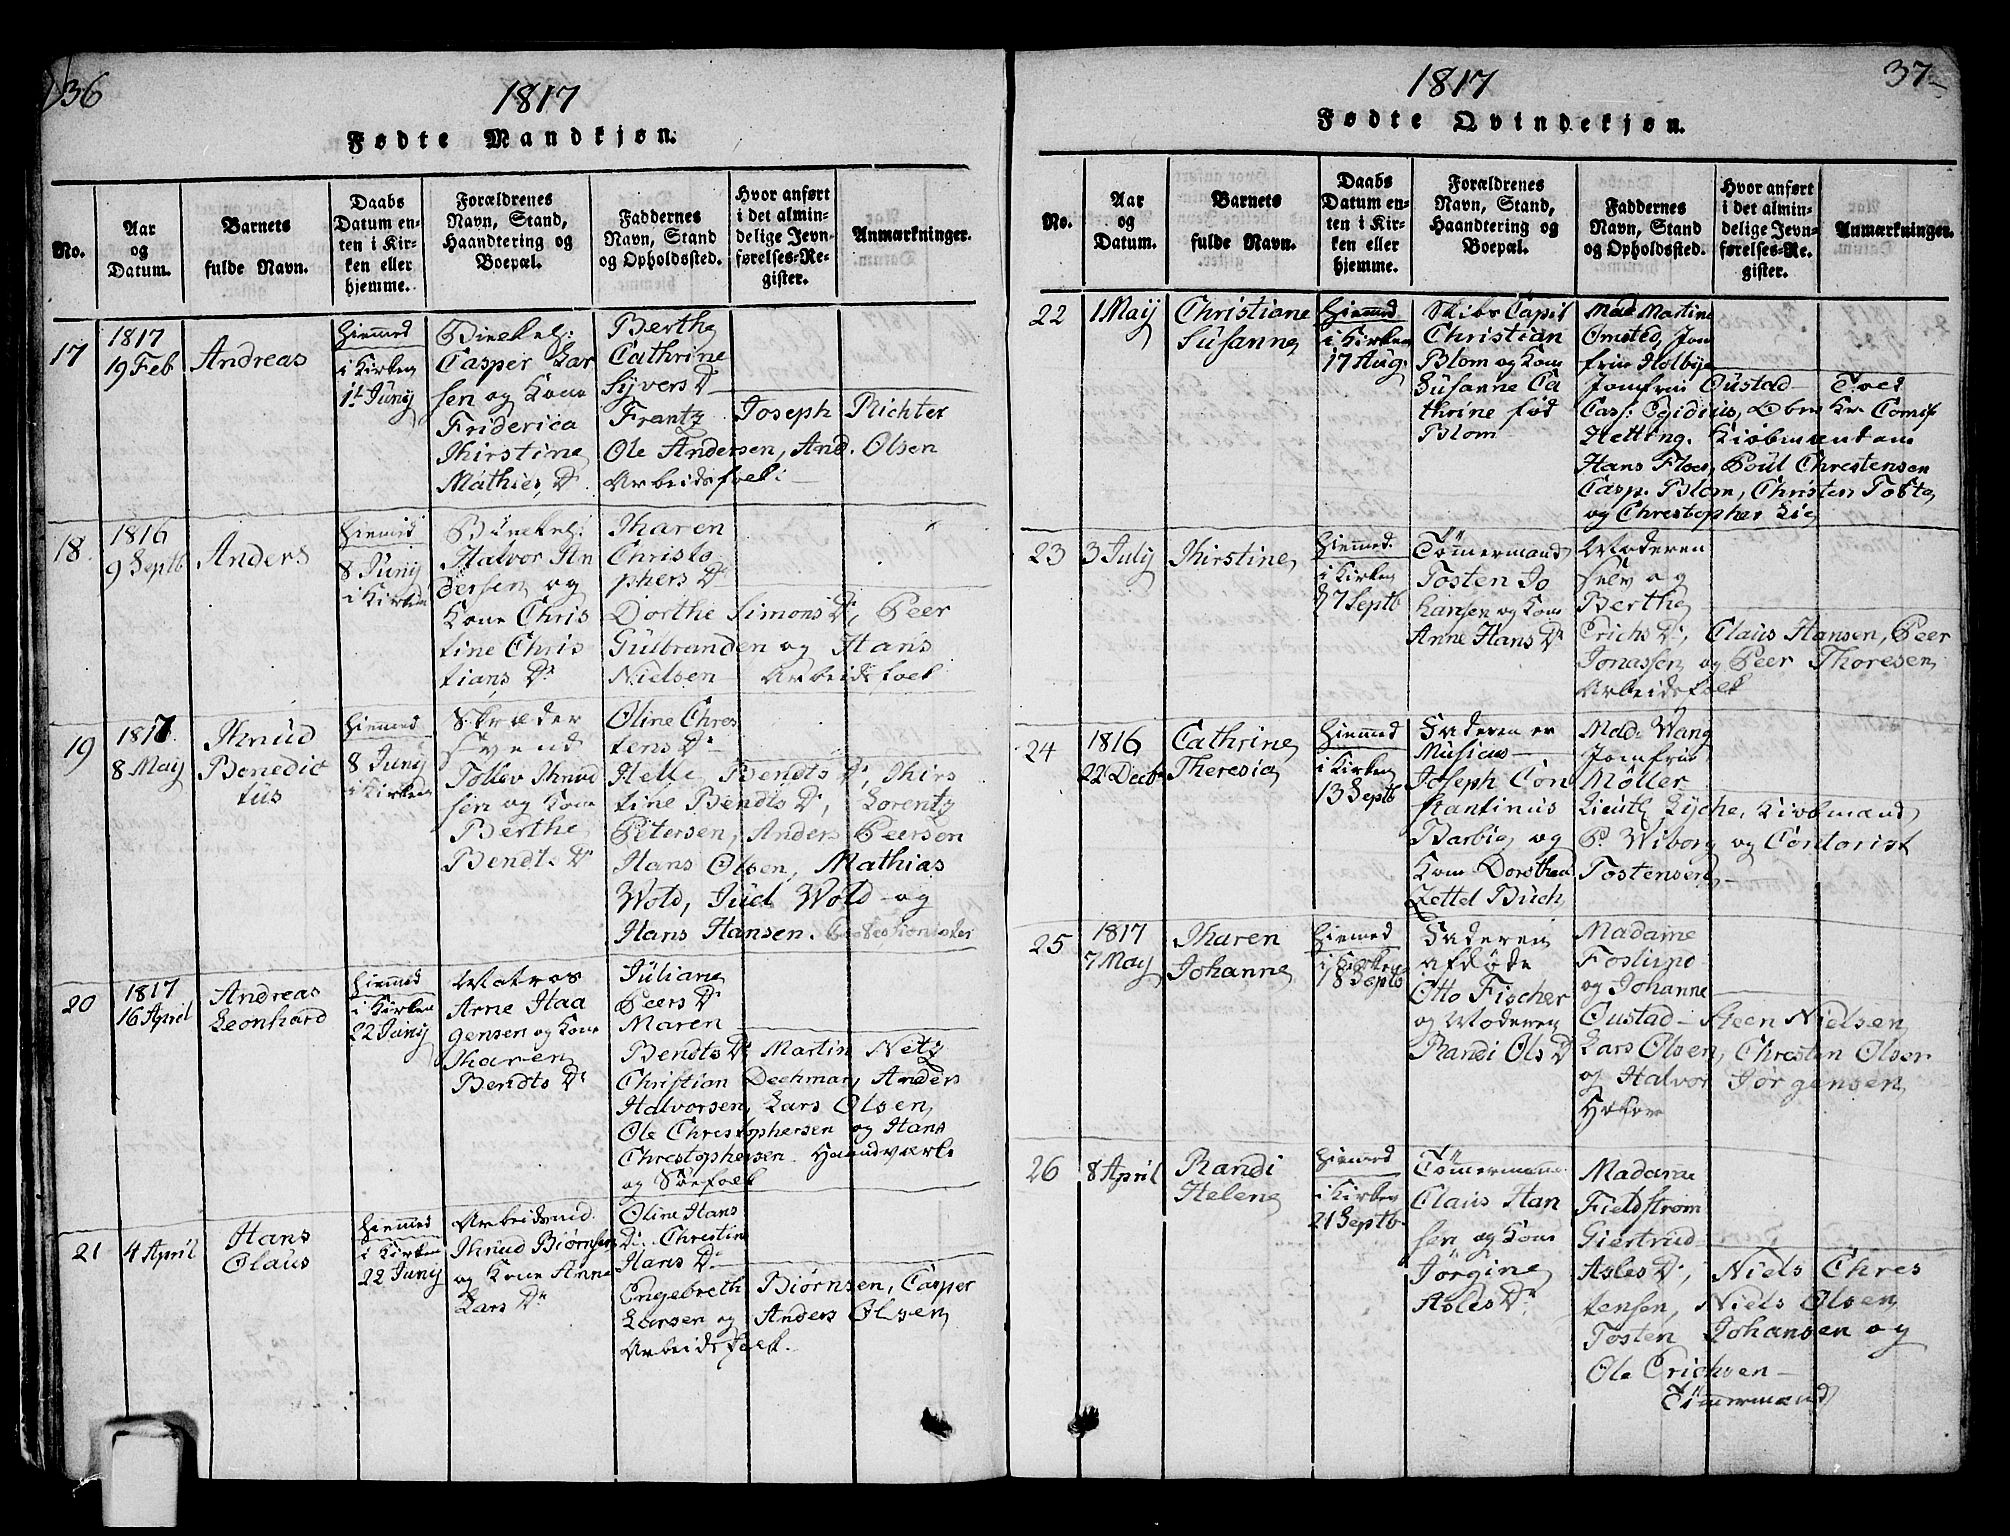 36
1817
Fødte Mandkjøn.
No.
Aar
og
Datum.
Barnets
fulde Navn.
Daabs
Datum en-
ten i Kir-
ken eller
hjemme.
Forældrenes
Navn, Stand,
Haandtering og
Boepæl.
Faddernes
Navn, Stand
og Opholdssted.
Hvor anført
i det almin-
delige Jevn-
førelses-Re-
gister.
Anmærkninger.
17
1817
19 Feb
Andreas
Hiemmed
i Kirken
1t Junij
Casper Lar
sen og Kone
Friderica
Kirstine
Mathies D.
Berthe
Cathrine
Syvers D.
Frantz Joseph Richter
Ole Andersen, And. Olsen
Arbeidsfolk
18.
1816
9 Septb
Anders
Hiemmed
8 Junij
i Kirken
Halvor An
dersen og
Kone Chris
tine Chris
tians D.
Karen
Christo
phers D.
Dorthe Simons D, Peer
Gulbranden og Hans
Nielsen Arbeidsfolk
19
1817.
8 May
Knud
Benedic
tus
Hiemmed
8 Junij
i Kirken
Skræder
Svend
Tollev Knud
sen og Kone
Berthe
Bendts D.
Oline Chres
tens D.
Helle Bendts D, Kirs
tine Bendts D, Lorentz
Petersen, Anders Peersen
Hans Olsen, Mathias
Wold, Juel Wold og
Hans Hansen.
20
1817
16 April
Andreas
Leonhard
Hiemmed
i Kirken
22 Junij
Matros
Arne Haa
gensen og Kone
Karen
Bendts D.
Juliane
Peers D.
Maren
Bendts D. Martin Netz
Christian Dechman, Anders
Halvorsen, Lars Olsen,
Ole Christophersen og Hans
Chrestophersen. Haandværks
og Søefolk
21
4 April
Hans
Olaus
Hiemmed
i Kirken
22 Junij
Arbeidsmd.
Knud Biørnsen
og Kone Anne
Lars D.
Oline Hans
D. Christin
Hans D.
Engebreth Biørnsen, Casper
Larsen og Anders Olsen,
Arbeidsfolk.
37
1817
Fødte Qvindekjøn.
No.
Aar
og
Datum.
Barnets
fulde Navn.
Daabs
Datum en-
ten i Kir-
ken eller
hjemme.
Forældrenes
Navn, Stand,
Haandtering og
Boepæl.
Faddernes
Navn, Stand
og Opholdssted.
Hvor anført
i det almin-
delige Jevn-
førelses-Re-
gister.
Anmærkninger.
22
1 May
Christiane
Susanne
Hiemmed
i Kirken
17 Aug.
Skibs Capit
Christian
Blom og Kone
Susanne Ca
thrine fød
Blom
Mad. Martine
Omsted, Jom
fru Holbye
Jomfru Oustad
Casp. Egidius,
Hetting. Kiøbmændene
Hans Floer, Poul Chrestensen
Casp. Blom, Christen Toste
og Chrestopher Lie
23
3 July
Kirstine
Hiemmed.
i Kirken
7 Septb
Tømmermand
Tosten Jo
hansen og Kone
Anne Hans D.
Moderen
selv og
Berthe
Erichs D, Claus Hansen, Peer
Jonassen og Peer Thoresen
Arbeidsfolk
24
1816
22 Decbr
Cathrine
Theresia
Hiemmed
i Kirken
13 Septb
Faderen er
Musicus
Joseph Con
stantinus
Barbie og
Kone Dorothea
Zettel Buch
Mad. Wang
Jomfru
Møller
Lieutl. Lyche, Kiøbmænd
P. Wiborg og Contorist
Tostensen
25
1817
7 May
Karen
Johanne
Hiemmed
i Kirken
18 Septb
Faderen
afdøde
Otto Fischer
og Moderen
Randi Ols D
Madame
Foslund
og Johanne
Oustad Steen Nielsen,
Lars Olsen, Chresten Olsen
og Halvor Jørgensen
26
8 April
Randi
Helene
Hiemmed
i Kirken
21 Septb.
Tømmermand
Claus Han
sen og Kone
Jørgine
Asles D.
Madame
Fieldstrøm
Giertrud
Asles D, Niels Chres
tensen, Niels Olsen,
Tosten Johansen og
Ole Erichsen
Tømmermænd